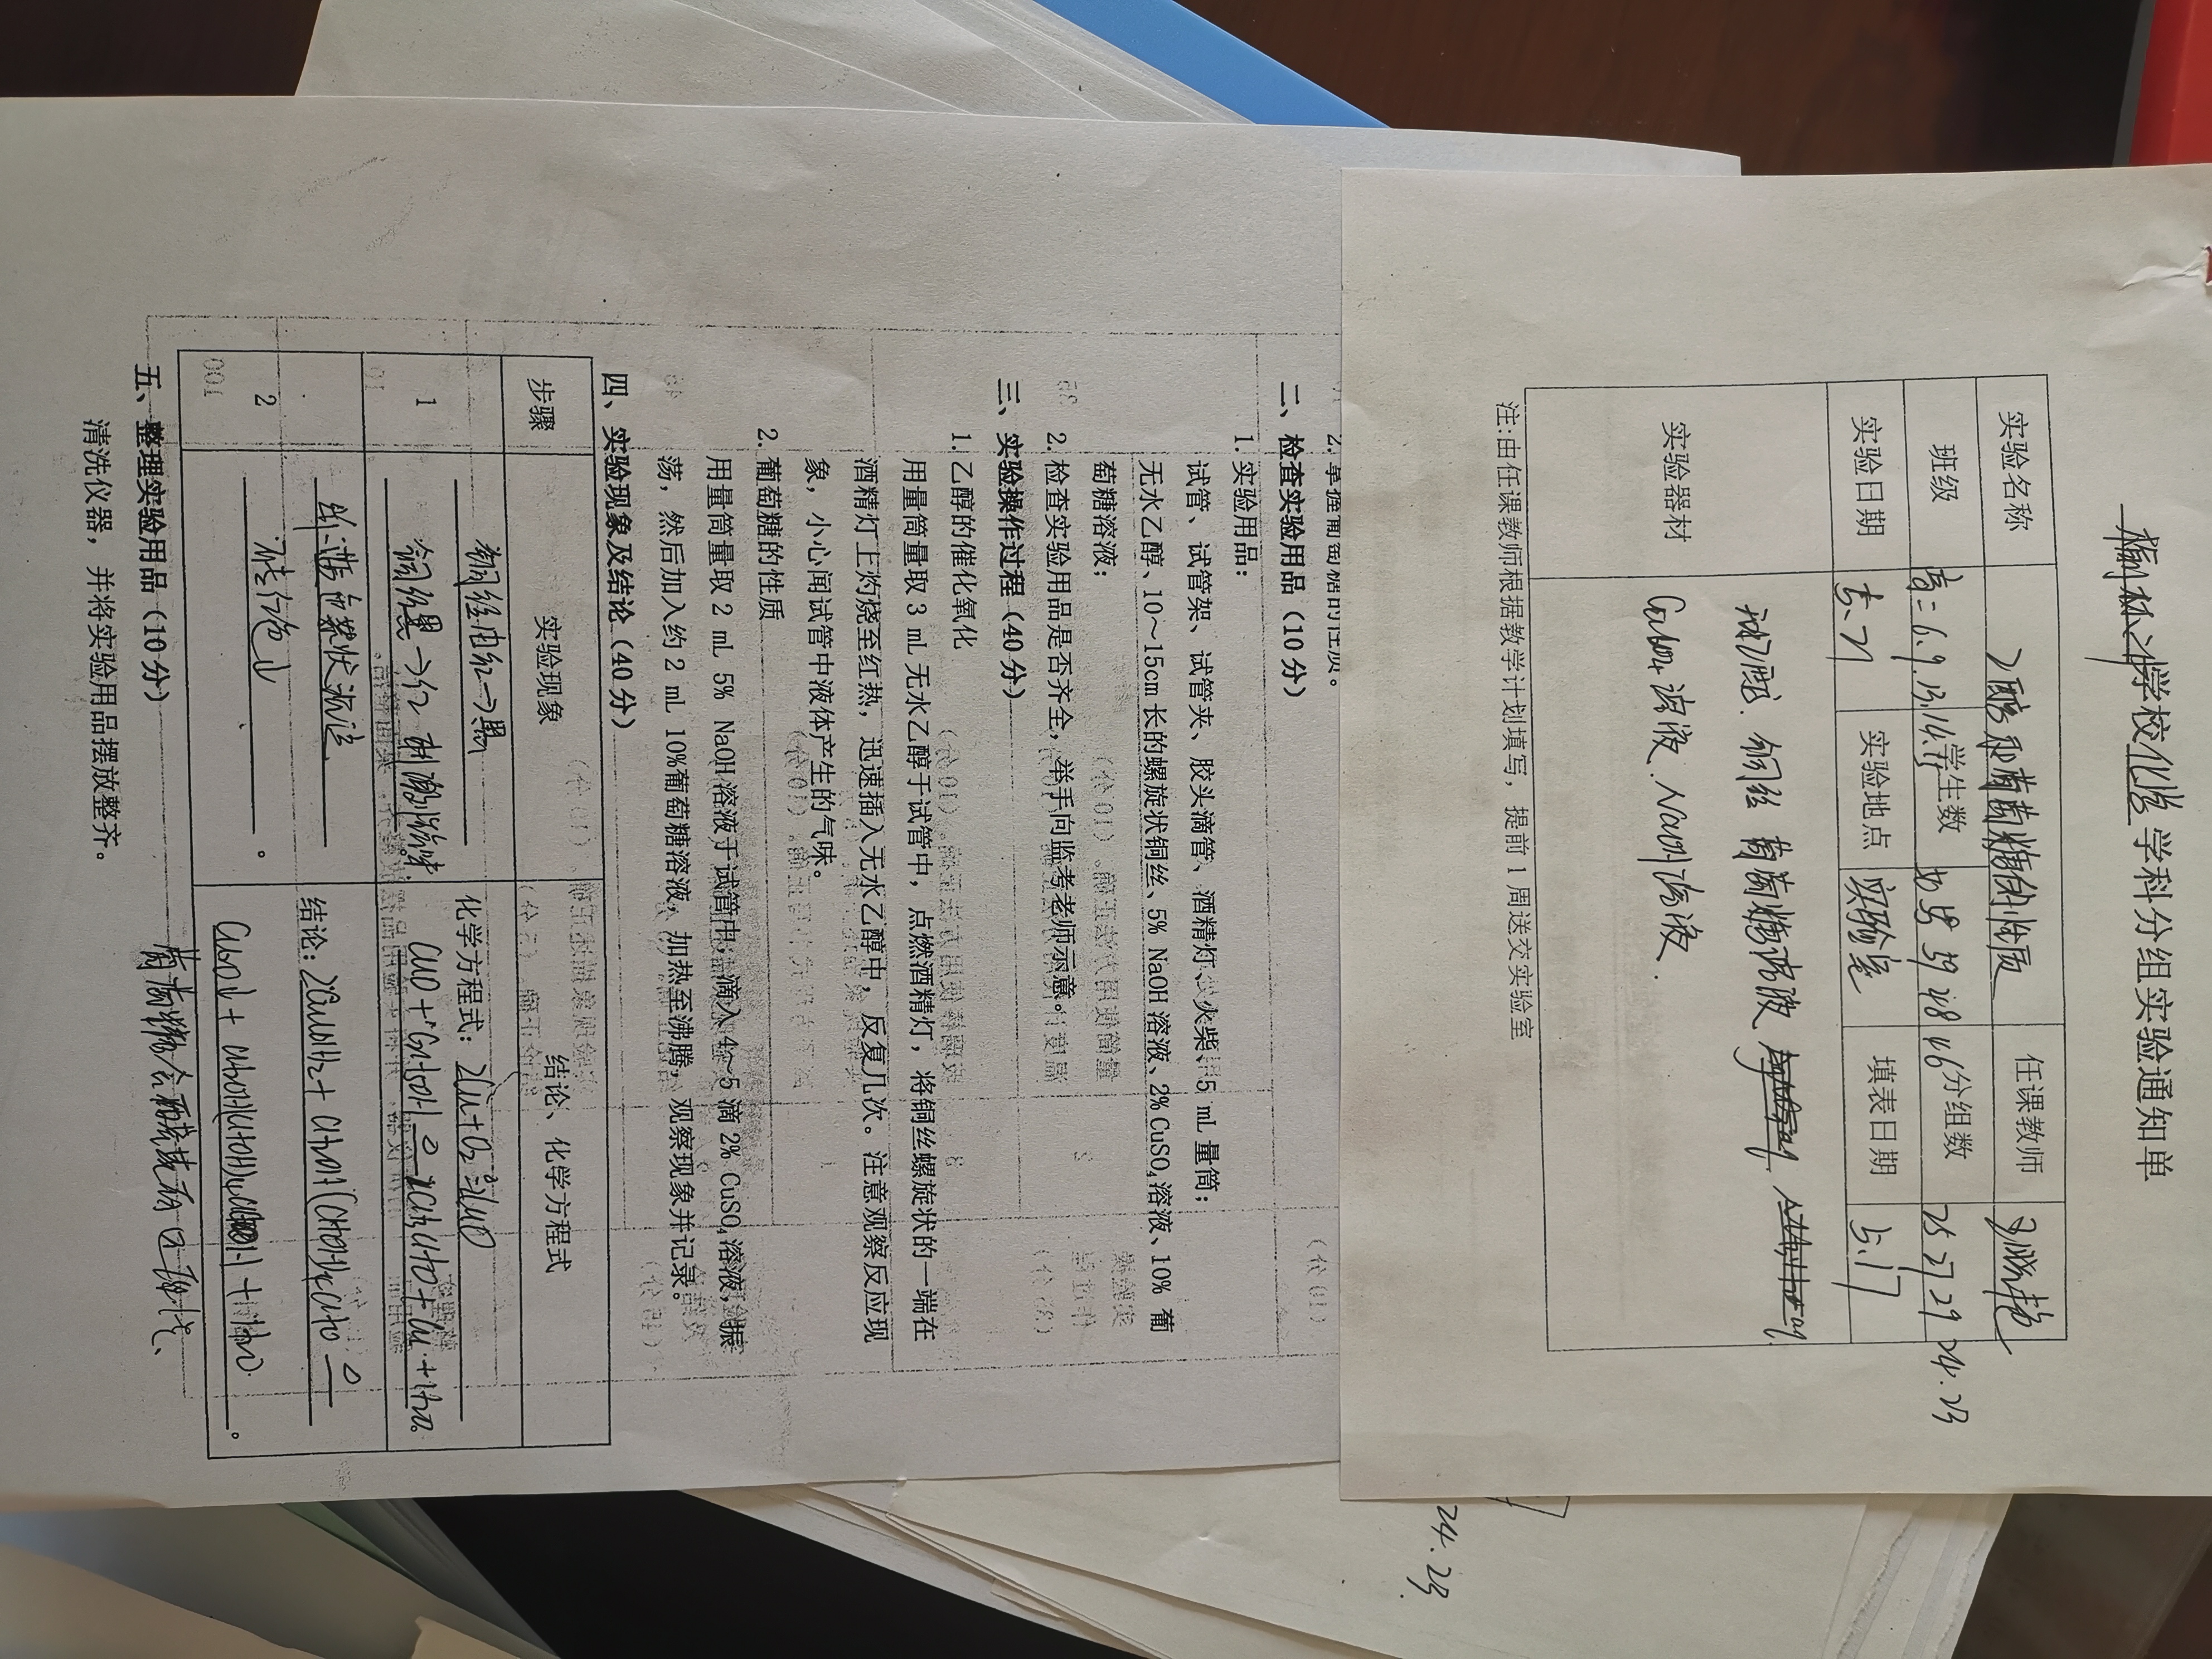 学校化学学科分组实验通知单
实验名称 乙醇和葡萄糖的性质 任课教师
班级 高二6.9.13.14.15 学生数 59 48 46 分组数 25 27 29 24.23
实验日期 5.21 实验地点 实验室 填表日期 5.17
实验器材
乙醇. 铜丝 葡萄糖溶液
CuSO4溶液. NaOH溶液.
注:由任课教师根据教学计划填写，提前1周送交实验室
24.23.
2. 掌握葡萄糖的性质。
二、检查实验用品（10分）
1. 实验用品：
试管、试管架、试管夹、胶头滴管、酒精灯、火柴、5 mL 量筒；
无水乙醇、10～15cm 长的螺旋状铜丝、5% NaOH 溶液、2% CuSO₄溶液、10% 葡
萄糖溶液；
2. 检查实验用品是否齐全，举手向监考老师示意。
三、实验操作过程（40分）
1. 乙醇的催化氧化
用量筒量取 3 mL 无水乙醇于试管中，点燃酒精灯，将铜丝螺旋状的一端在
酒精灯上灼烧至红热，迅速插入无水乙醇中，反复几次。注意观察反应现
象，小心闻试管中液体产生的气味。
2. 葡萄糖的性质
用量筒量取 2 mL 5% NaOH 溶液于试管中，滴入 4～5 滴 2% CuSO₄溶液，振
荡，然后加入约 2 mL 10%葡萄糖溶液，加热至沸腾，观察现象并记录。
四、实验现象及结论（40分）
步骤 实验现象 结论、化学方程式
1 铜丝由红→黑 化学方程式：2Cu+O₂ ≜ 2CuO
铜丝黑→红 刺激性气味. CuO + CH₃CH₂OH △ CH₃CHO + Cu + H₂O.
2 生蓝色絮状沉淀 结论：2Cu(OH)₂ + CH₂OH(CHOH)₄CHO △
砖红色↓ 。 Cu₂O↓ + CH₂OH(CHOH)₄COOH + H₂O 。
葡萄糖含醛基有还原性、
五、整理实验用品（10分）
清洗仪器，并将实验用品摆放整齐。